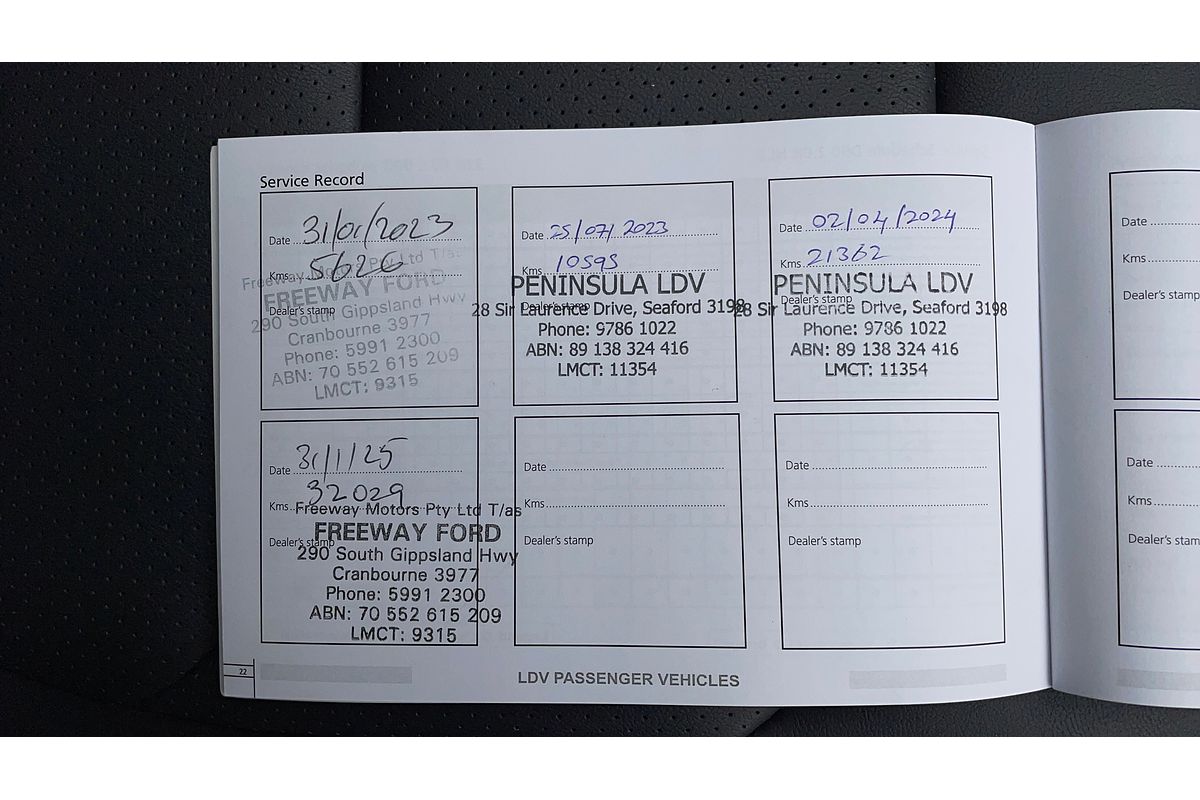 Service Record
Date 31/01/2023
Kms 5626
Freeway Motors Pty Ltd T/as
FREEWAY FORD
Dealer's stamp
290 South Gippsland Hwy
Cranbourne 3977
Phone: 5991 2300
ABN: 70 552 615 209
LMCT: 9315
Date 25/07/2023
Kms 10595
PENINSULA LDV
Dealer's stamp
28 Sir Laurence Drive, Seaford 3198
Phone: 9786 1022
ABN: 89 138 324 416
LMCT: 11354
Date 02/04/2024
Kms 21362
PENINSULA LDV
Dealer's stamp
28 Sir Laurence Drive, Seaford 3198
Phone: 9786 1022
ABN: 89 138 324 416
LMCT: 11354
Date 31/1/25
Kms 32029
Freeway Motors Pty Ltd T/as
FREEWAY FORD
Dealer's stamp
290 South Gippsland Hwy
Cranbourne 3977
Phone: 5991 2300
ABN: 70 552 615 209
LMCT: 9315
Date
Kms
Dealer's stamp
Date
Kms
Dealer's stamp
22
LDV PASSENGER VEHICLES
Date
Kms
Dealer's stamp
Date
Kms
Dealer's stam